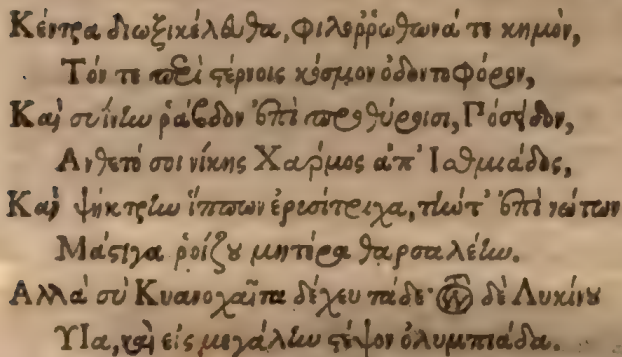 Κέντρα διωξικέλευθα, φιλοῤῥώθωνά τε κημὸν,
Τόν τε περὶ στέρνοις κόσμον ὀδοντοφόρον,
Καὶ συΐνην ῥάβδον ἐπὶ προθύροισι, Πόσειδον,
Ανθετό σοι νίκης Χάρμος ἀπ' Ισθμιάδος,
Καὶ ψήκτρην ἵππων ἐρισίτριχα, τήν τ' ἐπὶ νώτων
Μάστιγα ῥοίζου μητέρα θαρσαλέην.
Αλλὰ σὺ Κυανοχαῖτα δέχευ τάδε· τὸν δὲ Λυκίνου
Υἷα, καὶ εἰς μεγάλην στέψον ὀλυμπιάδα.